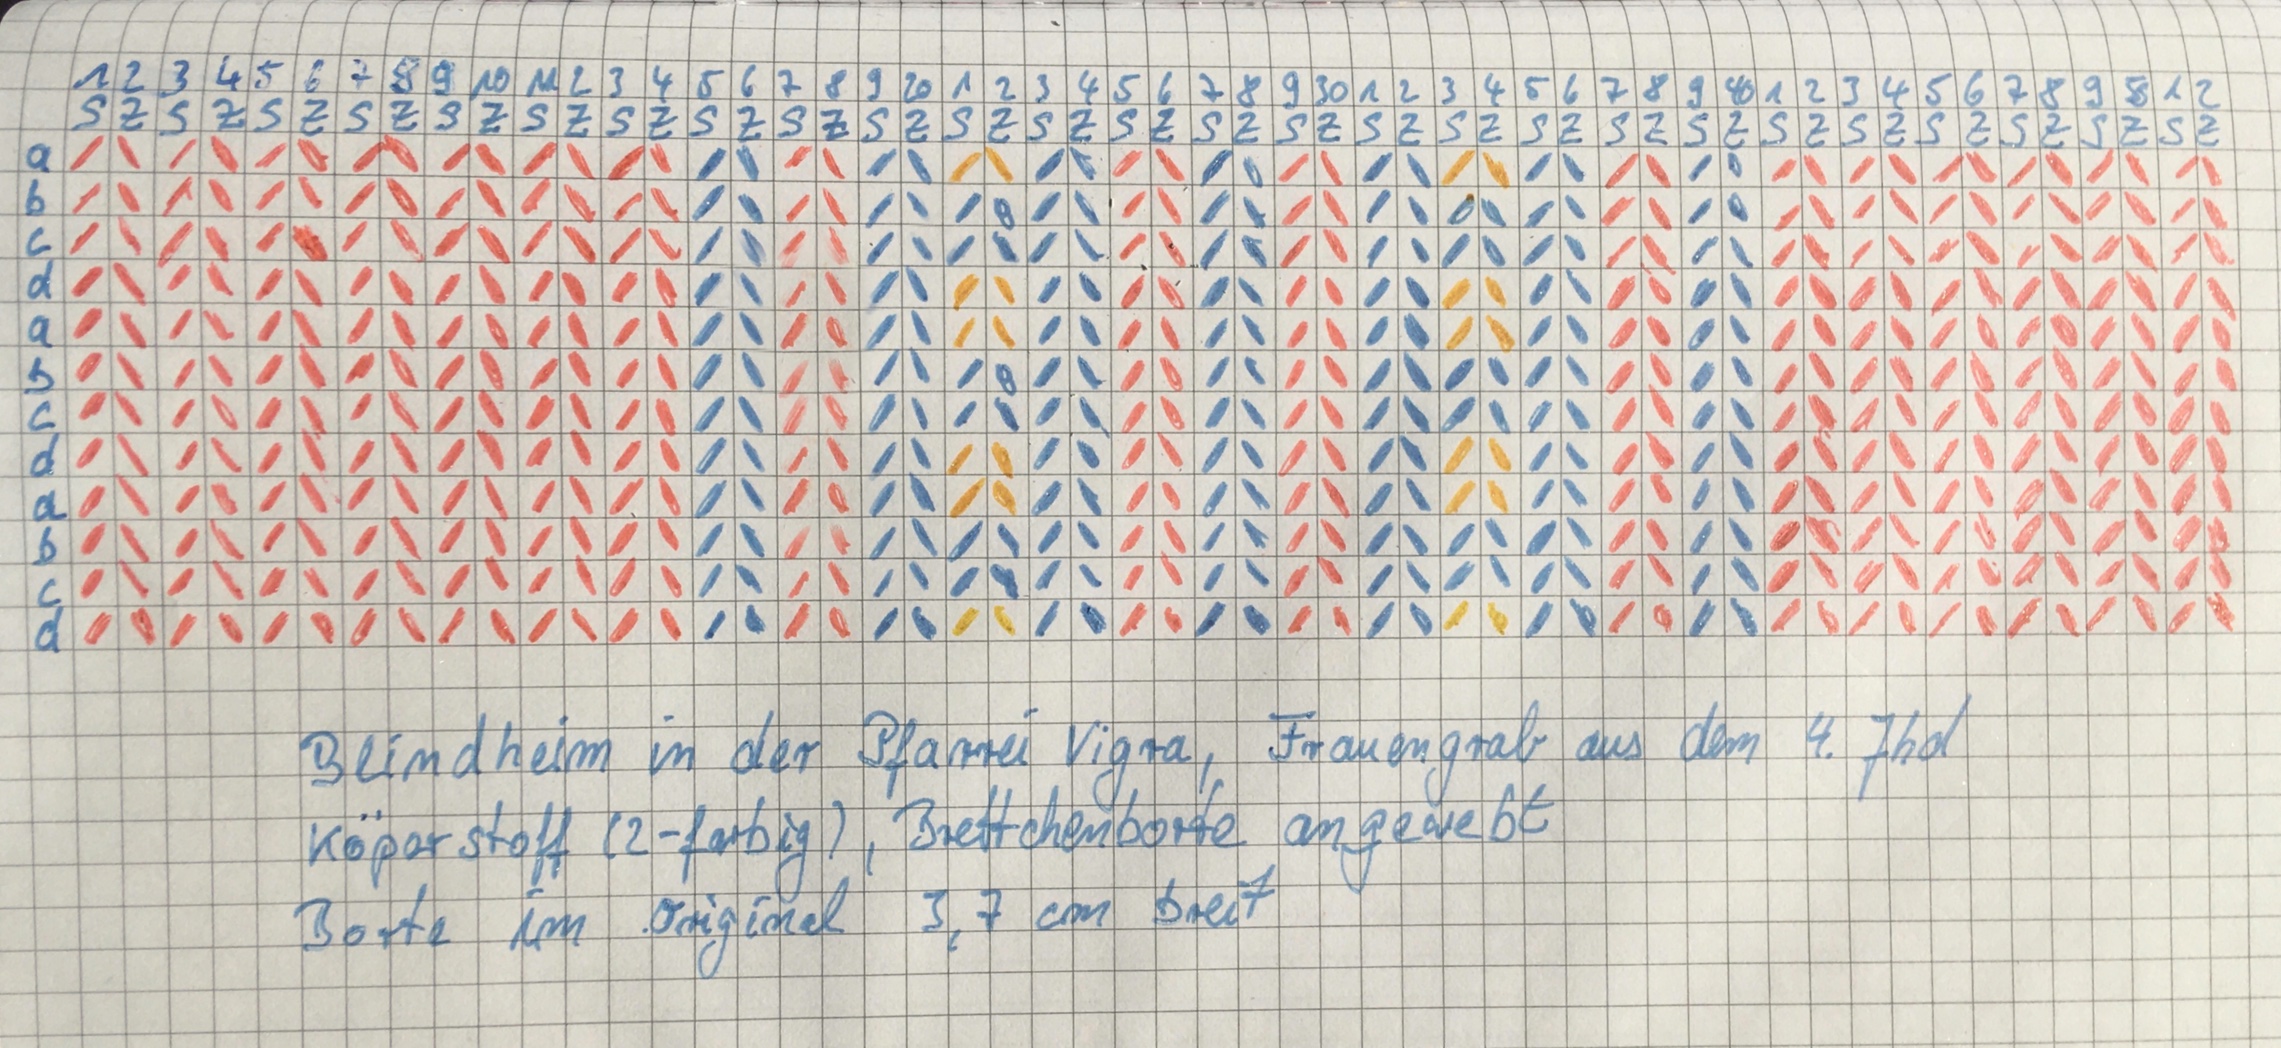 1 2 3 4 5 6 7 8 9 10 11 2 3 4 5 6 7 8 9 20 1 2 3 4 5 6 7 8 9 30 1 2 3 4 5 6 7 8 9 40 1 2 3 4 5 6 7 8 9 50 1 2
S Z S Z S Z S Z S Z S Z S Z S Z S Z S Z S Z S Z S Z S Z S Z S Z S Z S Z S Z S Z S Z S Z S Z S Z S Z S Z
a
b
c
d
a
b
c
d
a
b
c
d
Blindheim in der Pfarrei Vigra, Frauengrab aus dem 4. Jhd
Köperstoff (2-farbig), Brettchenborte angewebt
Borte im Original 3,7 cm breit